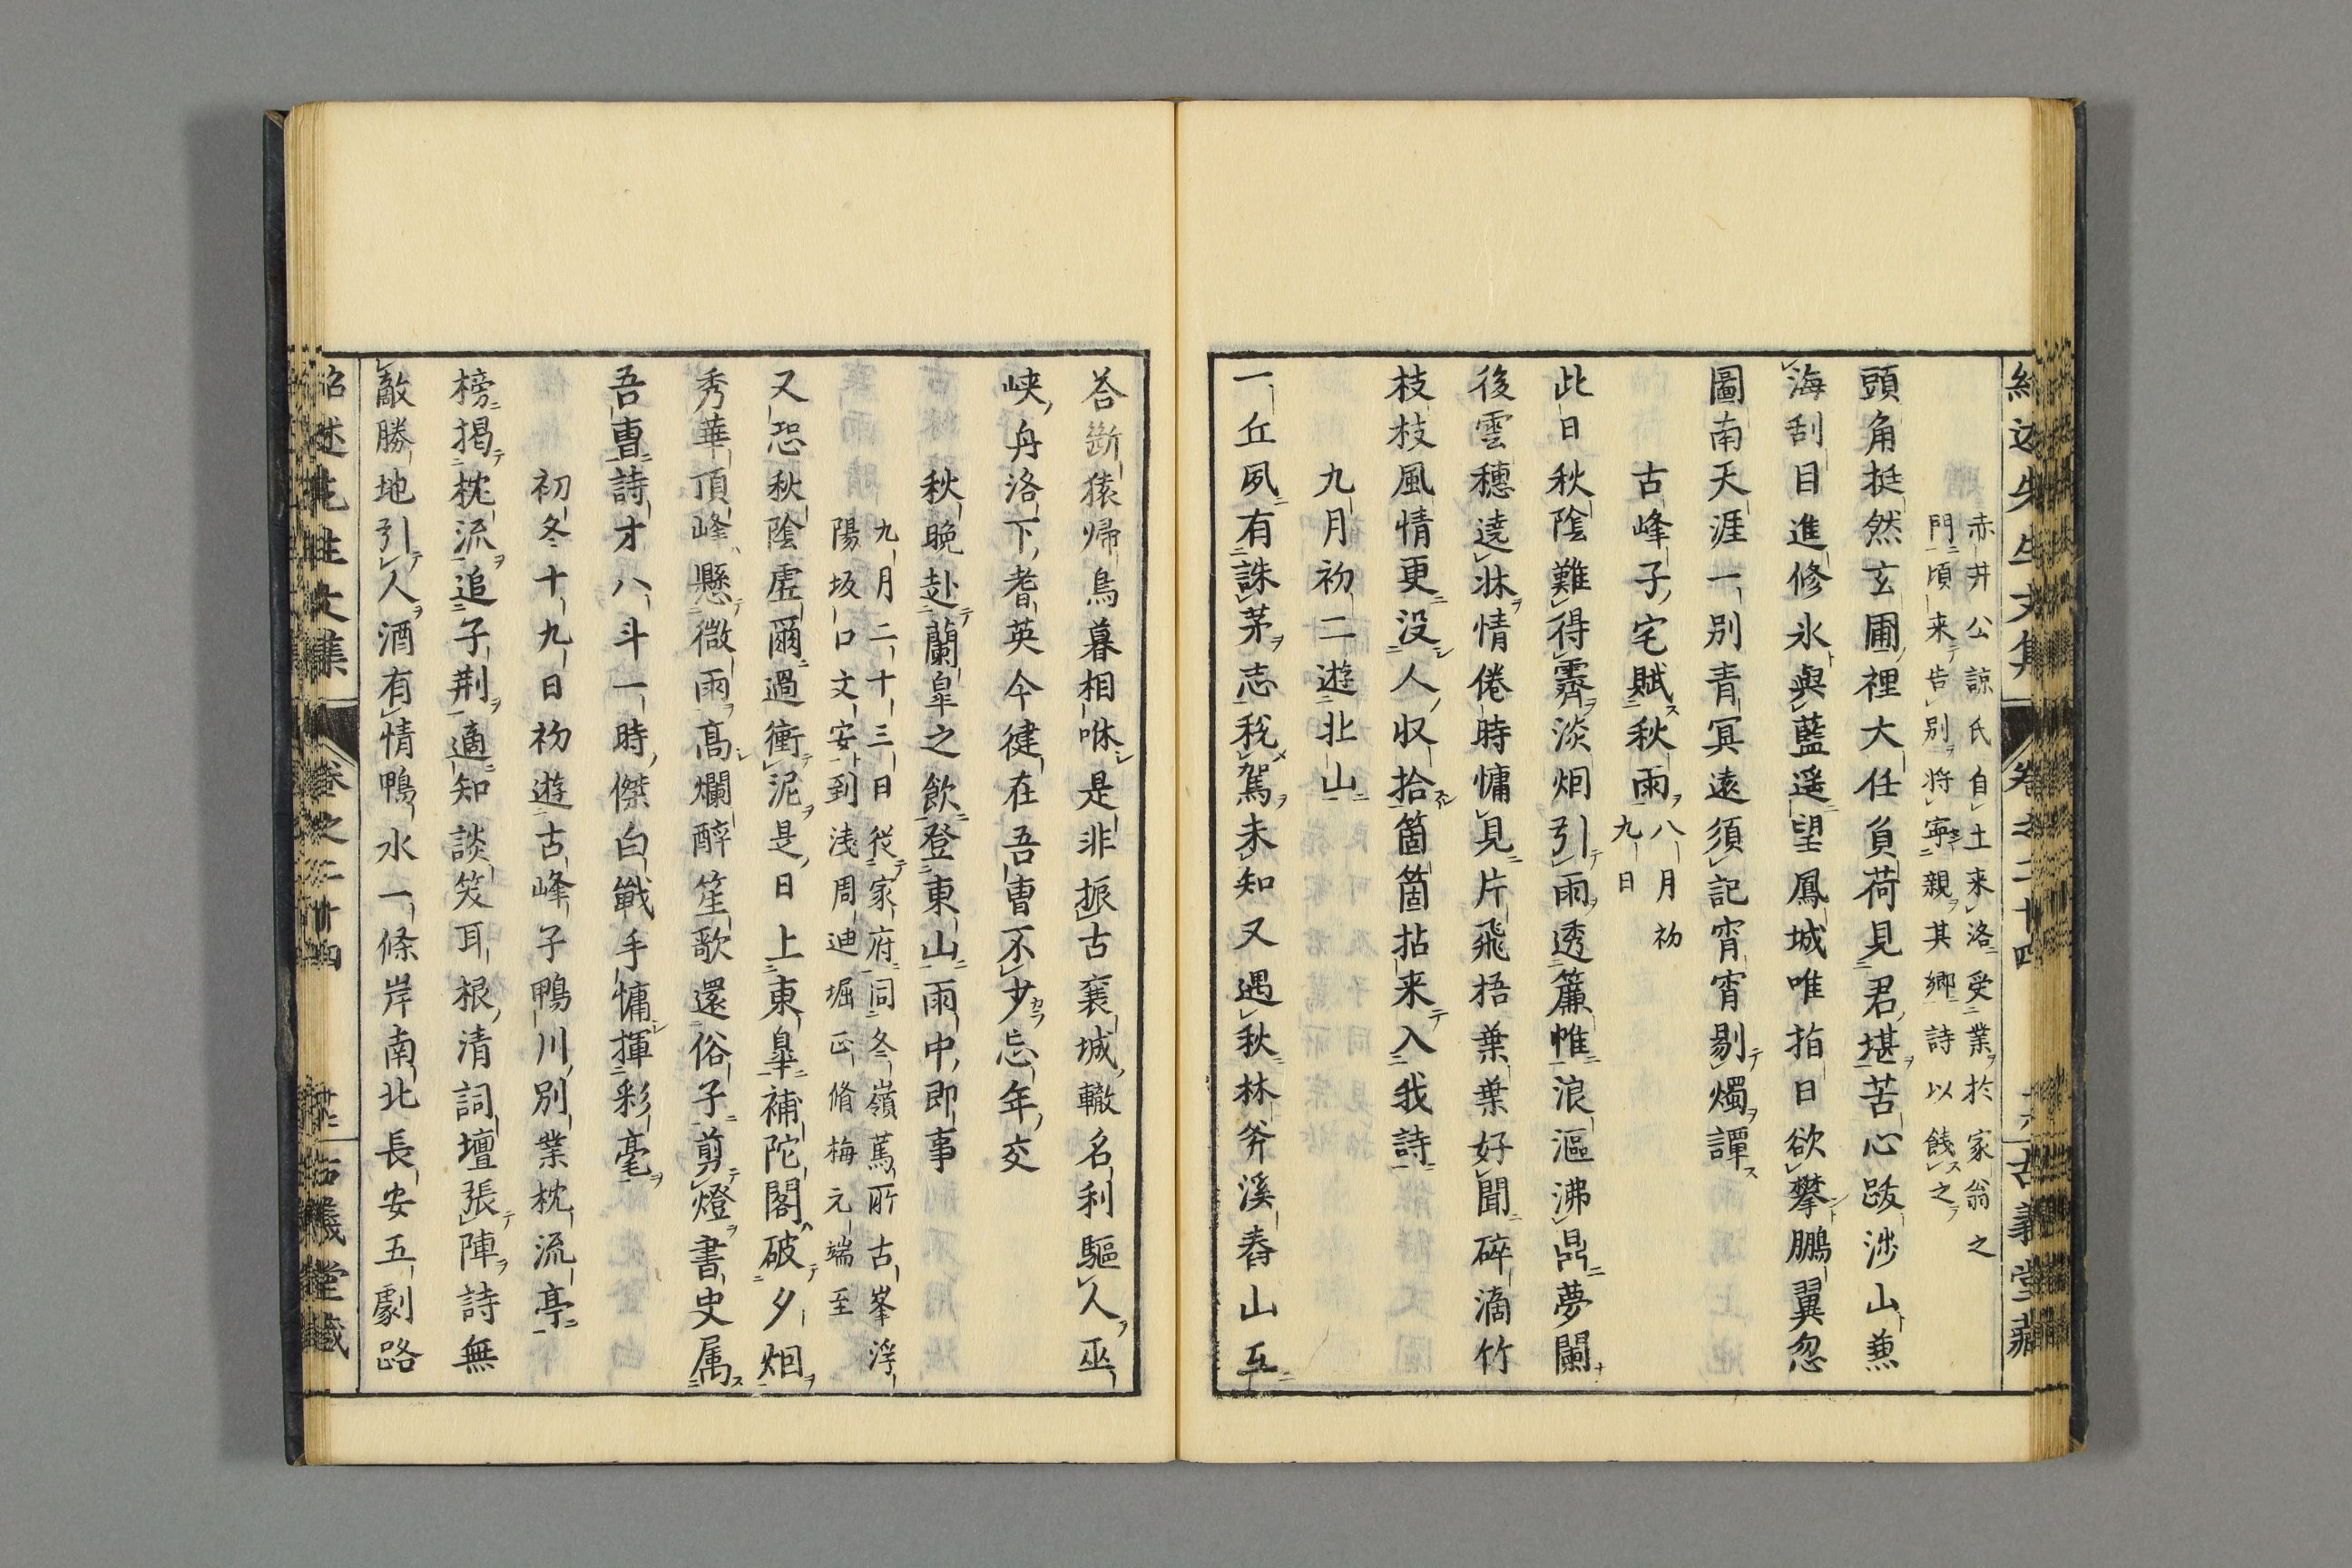 赤井公諒氏自土来洛受業於家翁之
門頃来告別将寧親其郷詩以餞之
頭角挺然玄圃裡大任負荷見君堪苦心跋渉山兼
海刮目進修氷與藍遥望鳳城唯指日欲攀鵬翼忽
圖南天涯一別青冥遠須記宵宵剔燭譚
古峰子宅賦秋雨
八月初
九日
此日秋陰難得霽淡烟引雨透簾帷浪漚沸鼎夢闌
後雲穗遶牀情倦時慵見片飛梧葉葉好聞碎滴竹
枝枝風情更没人収拾箇箇拈来入我詩
九月初二遊北山
一丘夙有誅茅志税駕未知又遇秋林斧溪舂山互
荅斷猿歸鳥暮相咻是非振古襄城轍名利驅人巫
峡舟洛下耆英今健在吾曹不少忘年交
秋晩赴蘭皐之飲登東山雨中即事
九月二十三日従家府同冬嶺蔿所古峯浮
陽坂口文安到浅周迪堀正脩梅元端至
又恐秋陰虚爾過衝泥是日上東皐補陀閣破夕烟
秀華頂峰懸微雨高爛醉笙歌還俗子剪燈書史属
吾曹詩才八斗一時傑白戰手慵揮彩毫
初冬十九日初遊古峰子鴨川別業枕流亭
榜掲枕流追子荆適知談笑耳根清詞壇張陣詩無
敵勝地引人酒有情鴨水一條岸南北長安五劇路
紹述先生文集
巻之二十四
古義堂藏